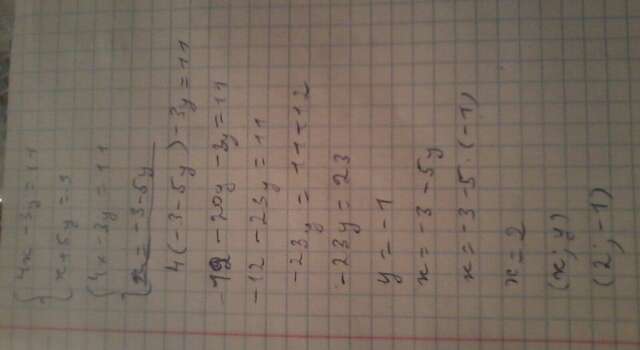 { 4x - 3y = 11
{ x + 5y = 3
{ 4x - 3y = 11
{ x = -3 - 5y
4(-3 - 5y) - 3y = 11
-12 - 20y - 3y = 11
-12 - 23y = 11
-23y = 11 + 12
-23y = 23
y = -1
x = -3 - 5y
x = -3 - 5 · (-1)
x = 2
(x; y)
(2; -1)